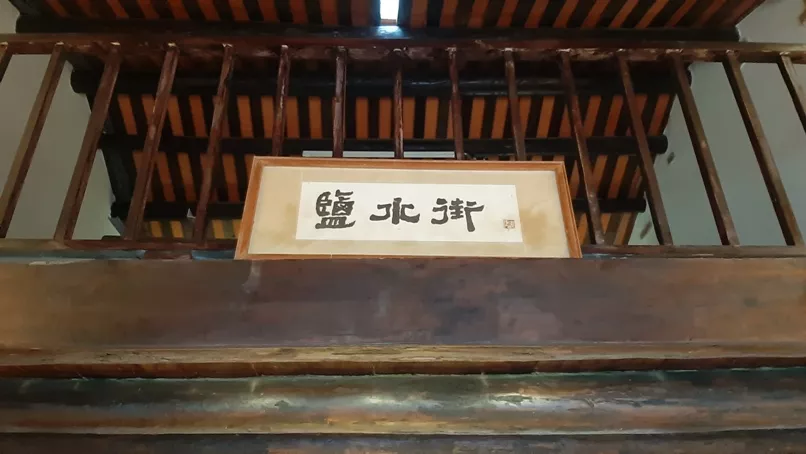 鹽水街